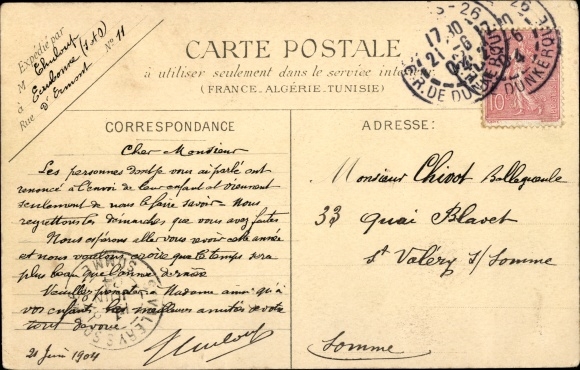 Expédié par
M Thulout
à Eaubonne (S & O)
Rue D'Ermont No 11
CARTE POSTALE
à utiliser seulement dans le service
(FRANCE_ALGÉRIE_TUNISIE)
CORRESPONDANCE
Cher Monsieur
Les personnes dont je vous ai parlé ont
renoncé à l'envoi de leur enfant et viennent
seulement de nous le faire savoir. Nous
regrettons les démarches que vous avez faites
Nous espérons aller vous avoir cette année
et nous voulons croire que le temps sera
plus beau que l'année dernière
Veuillez présenter à Madame ainsi qu'à
vos enfants les meilleures amitiés de votre
tout dévoué
21 Juin 1904
ADRESSE:
Monsieur Chivot
33 Quai Blavet
St Valéry s/ Somme
Somme
17 30
21 -6
04
R. DE DUNKERQUE
DUNKERQUE
10
ST VALERY S SOMME